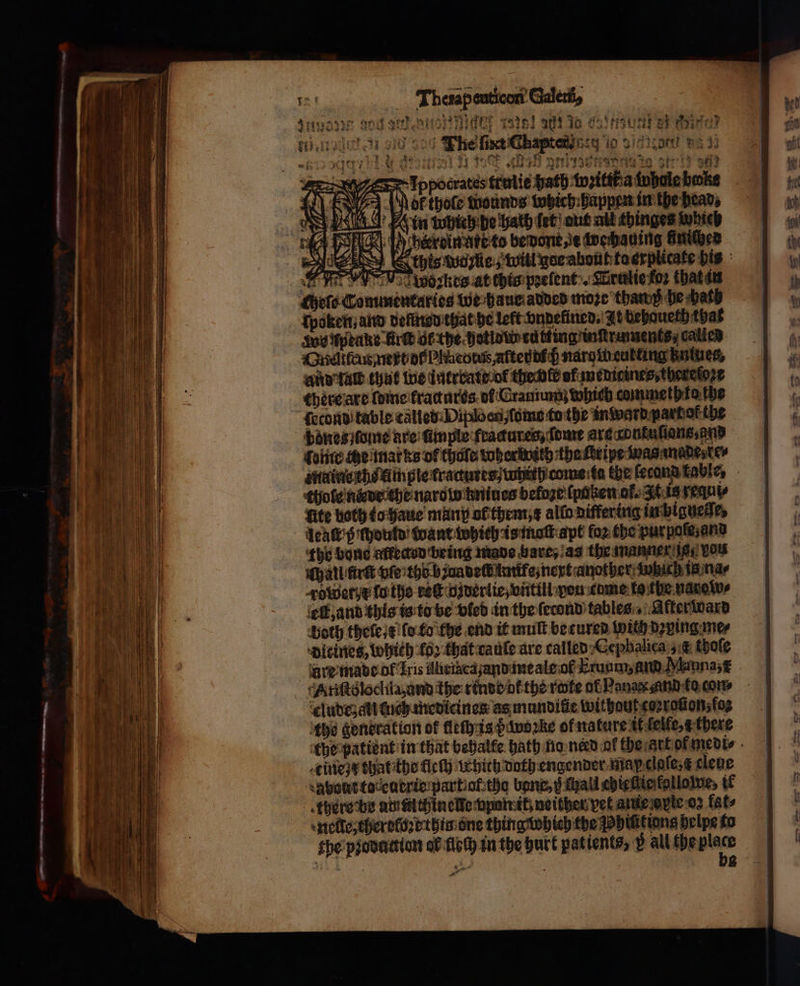 Therapeuticon Galeni,
The sixt Chapter.
Hippocrates trulie hath written a whole booke
of those wounds which happen in the head,
in which he hath set out all thinges which
heerein are to be done, we hauing finished
this worke, will goe about to explicate his
workes at this present. Trulie for that in
these Commentaries we haue added more than yͤ he hath
spoken, and defined that he left vndefined. It behoueth that
we speake first of the hollow cutting instruments, called
next of Phacotus, after of yͤ narow cutting kniues,
and last that we intreate of the vse of medicines, therefore
there are some fractures of Cranium, which commeth to the
second table called Diploen, some to the inward part of the
bones, some are simple fractures, some are contusions, and
some the marks of those wherewith the stripe was made,
the simple fractures, which come to the second table,
those neede the narow kniues before spoken of. It is requi-
site both to haue many of them, & also differing in bignesse,
least yͤ should want which is most apt for the purpose, and
the bone affected being made bare, as the manner is, you
shall first vse the broadest knife, next another, which is na-
rower, & so the rest orderlie, vntill you come to the narow-
est, and this is to be vsed in the second tables. Afterward
both these, & so to the end it must be cured with drying me-
dicines, which for that cause are called Cephalica, & those
are made of Iris illirica, and meale of Eruum, and Manna, &
Aristolochia, and the rinde of the roote of Panax, and to con-
clude, all such medicines as mundifie without corrosion, for
the generation of flesh is yͤ worke of nature it selfe, & there
the patient in that behalfe hath no need of the art of medi-
cine, & that the flesh which doth engender may close, & cleue
about to euerie part of the bone, yͤ shall chieflie followe, if
there be no filthinesse vpon it, neither yet anie oyle or fat-
nesse, therefore this one thing which the Phisitions helpe to
the production of flesh in the hurt patients, yͤ all the place
be